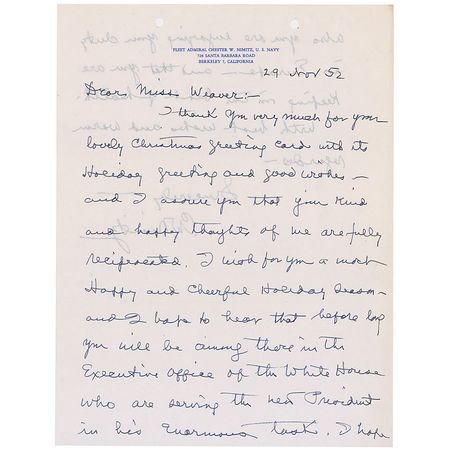 FLEET ADMIRAL CHESTER W. NIMITZ, U. S. NAVY
728 SANTA BARBARA ROAD
BERKELEY 7, CALIFORNIA
29 Nov 52
Dear Miss Weaver:-
I thank you very much for your
lovely Christmas greeting card with its
Holiday greeting and good wishes -
and I assure you that your kind
and happy thoughts of me are fully
reciprocated. I wish for you a most
Happy and Cheerful Holiday Season -
and I hope to hear that before long
you will be among those in the
Executive Office of the White House
who are serving the new President
in his enormous task. I hope